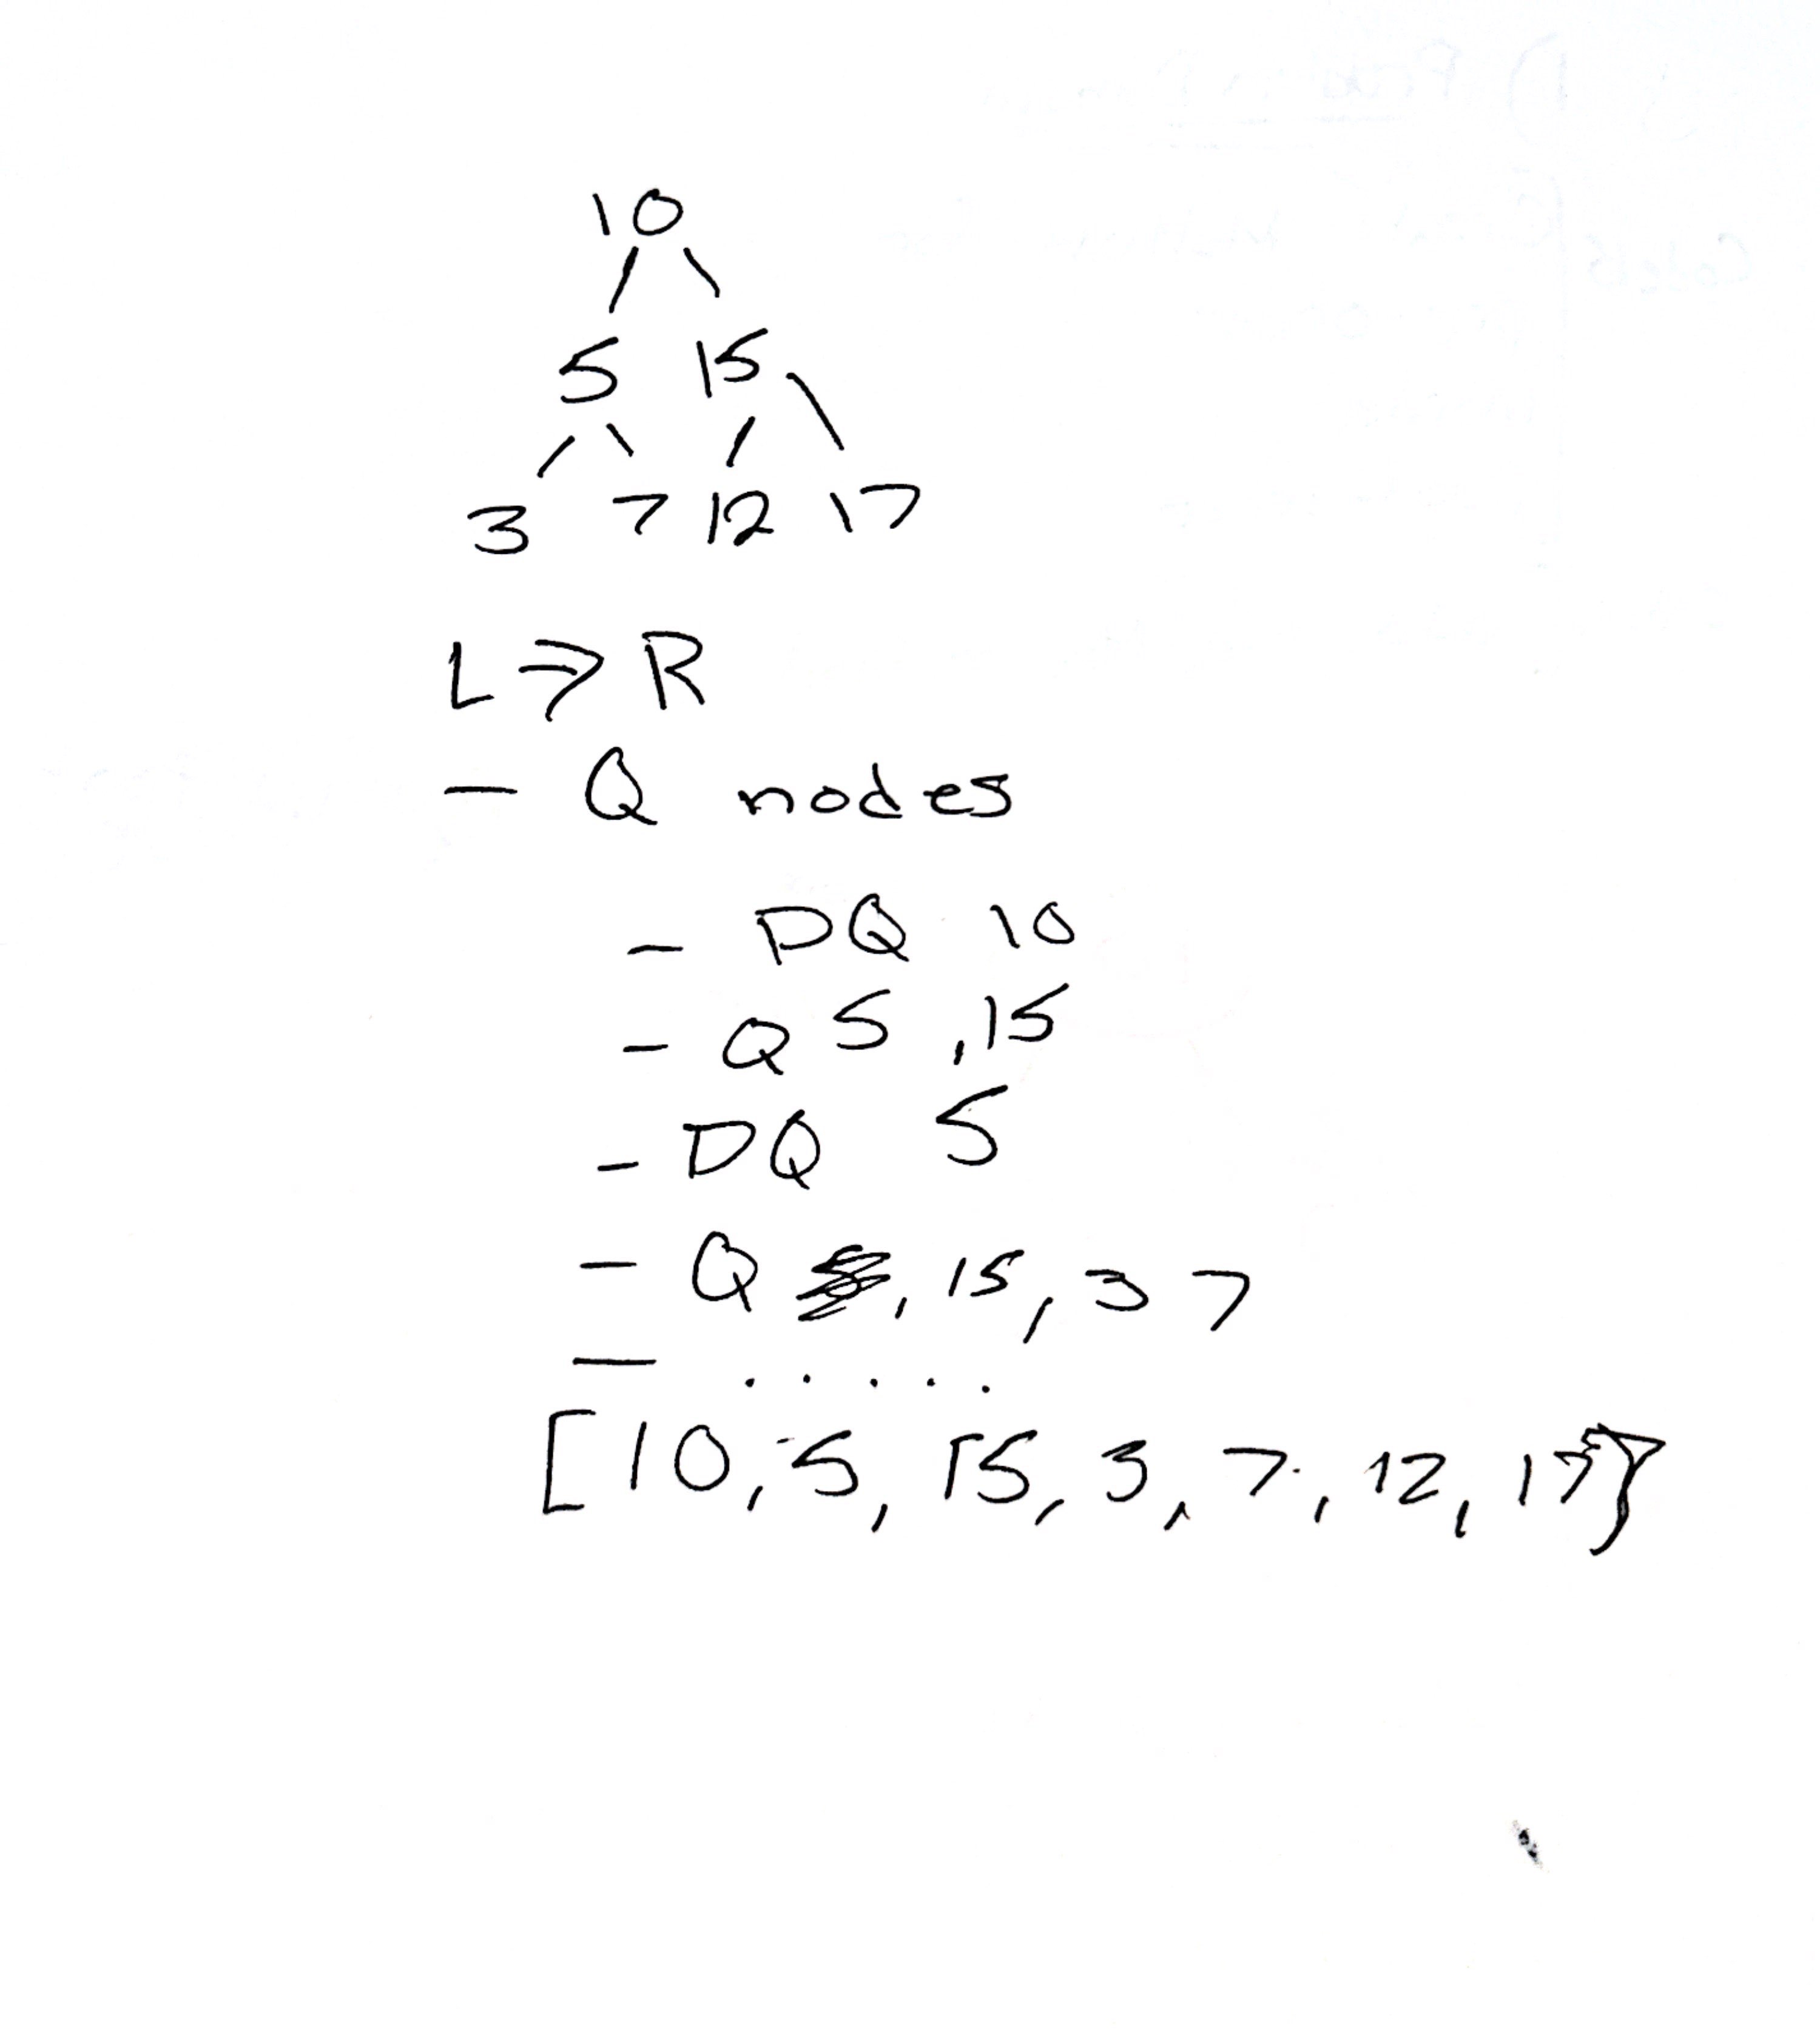 10
5 15
3 7 12 17
L → R
- Q nodes
- DQ 10
- Q 5 ,15
- DQ 5
- Q , 15, 3 7
- .....
[10, 5, 15, 3, 7, 12, 17]